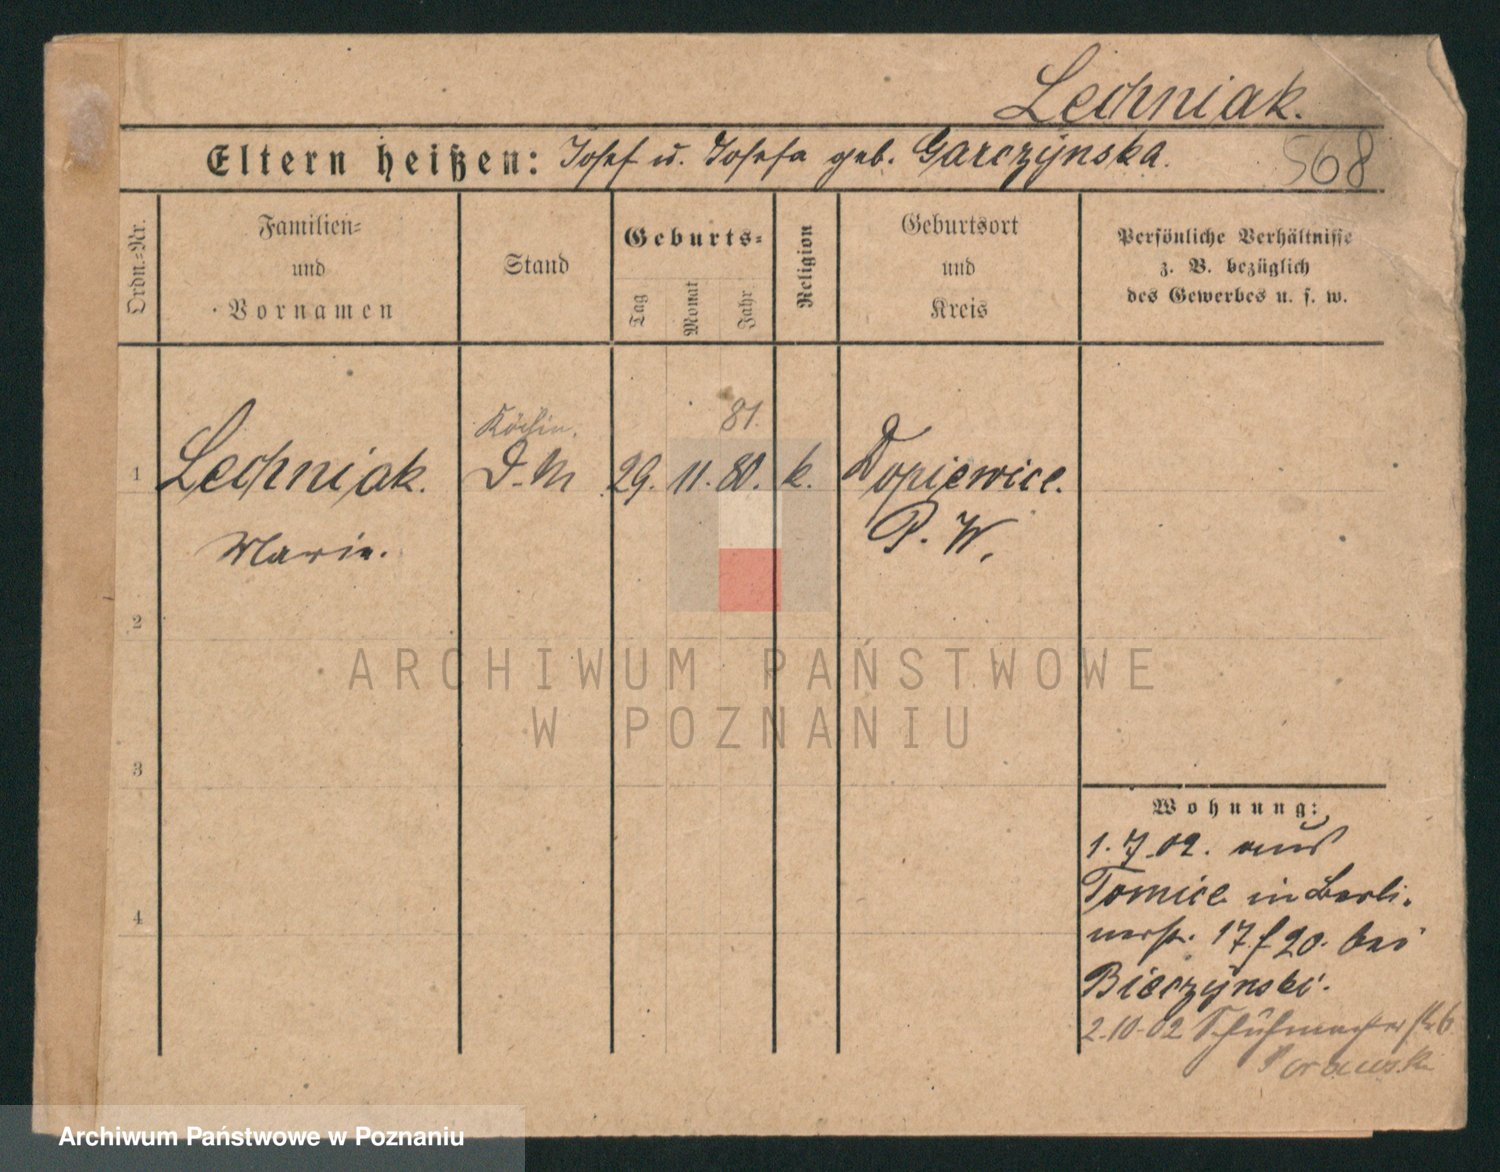 Lechniak.
568
Eltern heißen: Josef u. Josefa geb. Garczynska.
Ordn.-Nr.
Familien-
und
Vornamen
Stand
Geburts-
Tag
Monat
Jahr
Religion
Geburtsort
und
Kreis
Persönliche Verhältnisse
z. B. bezüglich
des Gewerbes u. s. w.
Köchin. 81.
1 Lechniak. D. M 29. 11. 80. k. Dopiewice.
Marie. P. W.
2
ARCHIWUM PAŃSTWOWE
W POZNANIU
3
Wohnung:
1.7.02. aus
Tomice in Berli-
nerstr. 17. f 20. bei
4
Bieczynski.
2.10.02 Schuhmacherstr 6
Archiwum Państwowe w Poznaniu